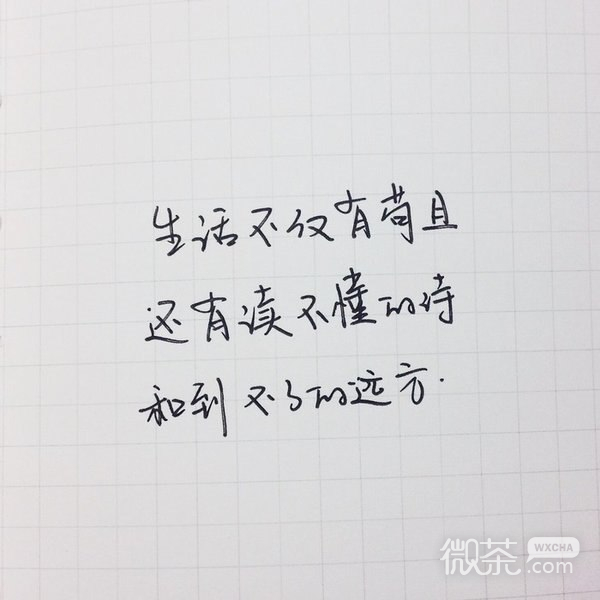 生活不仅有苟且
还有读不懂的诗
和到不了的远方.
微茶 WXCHA
.com